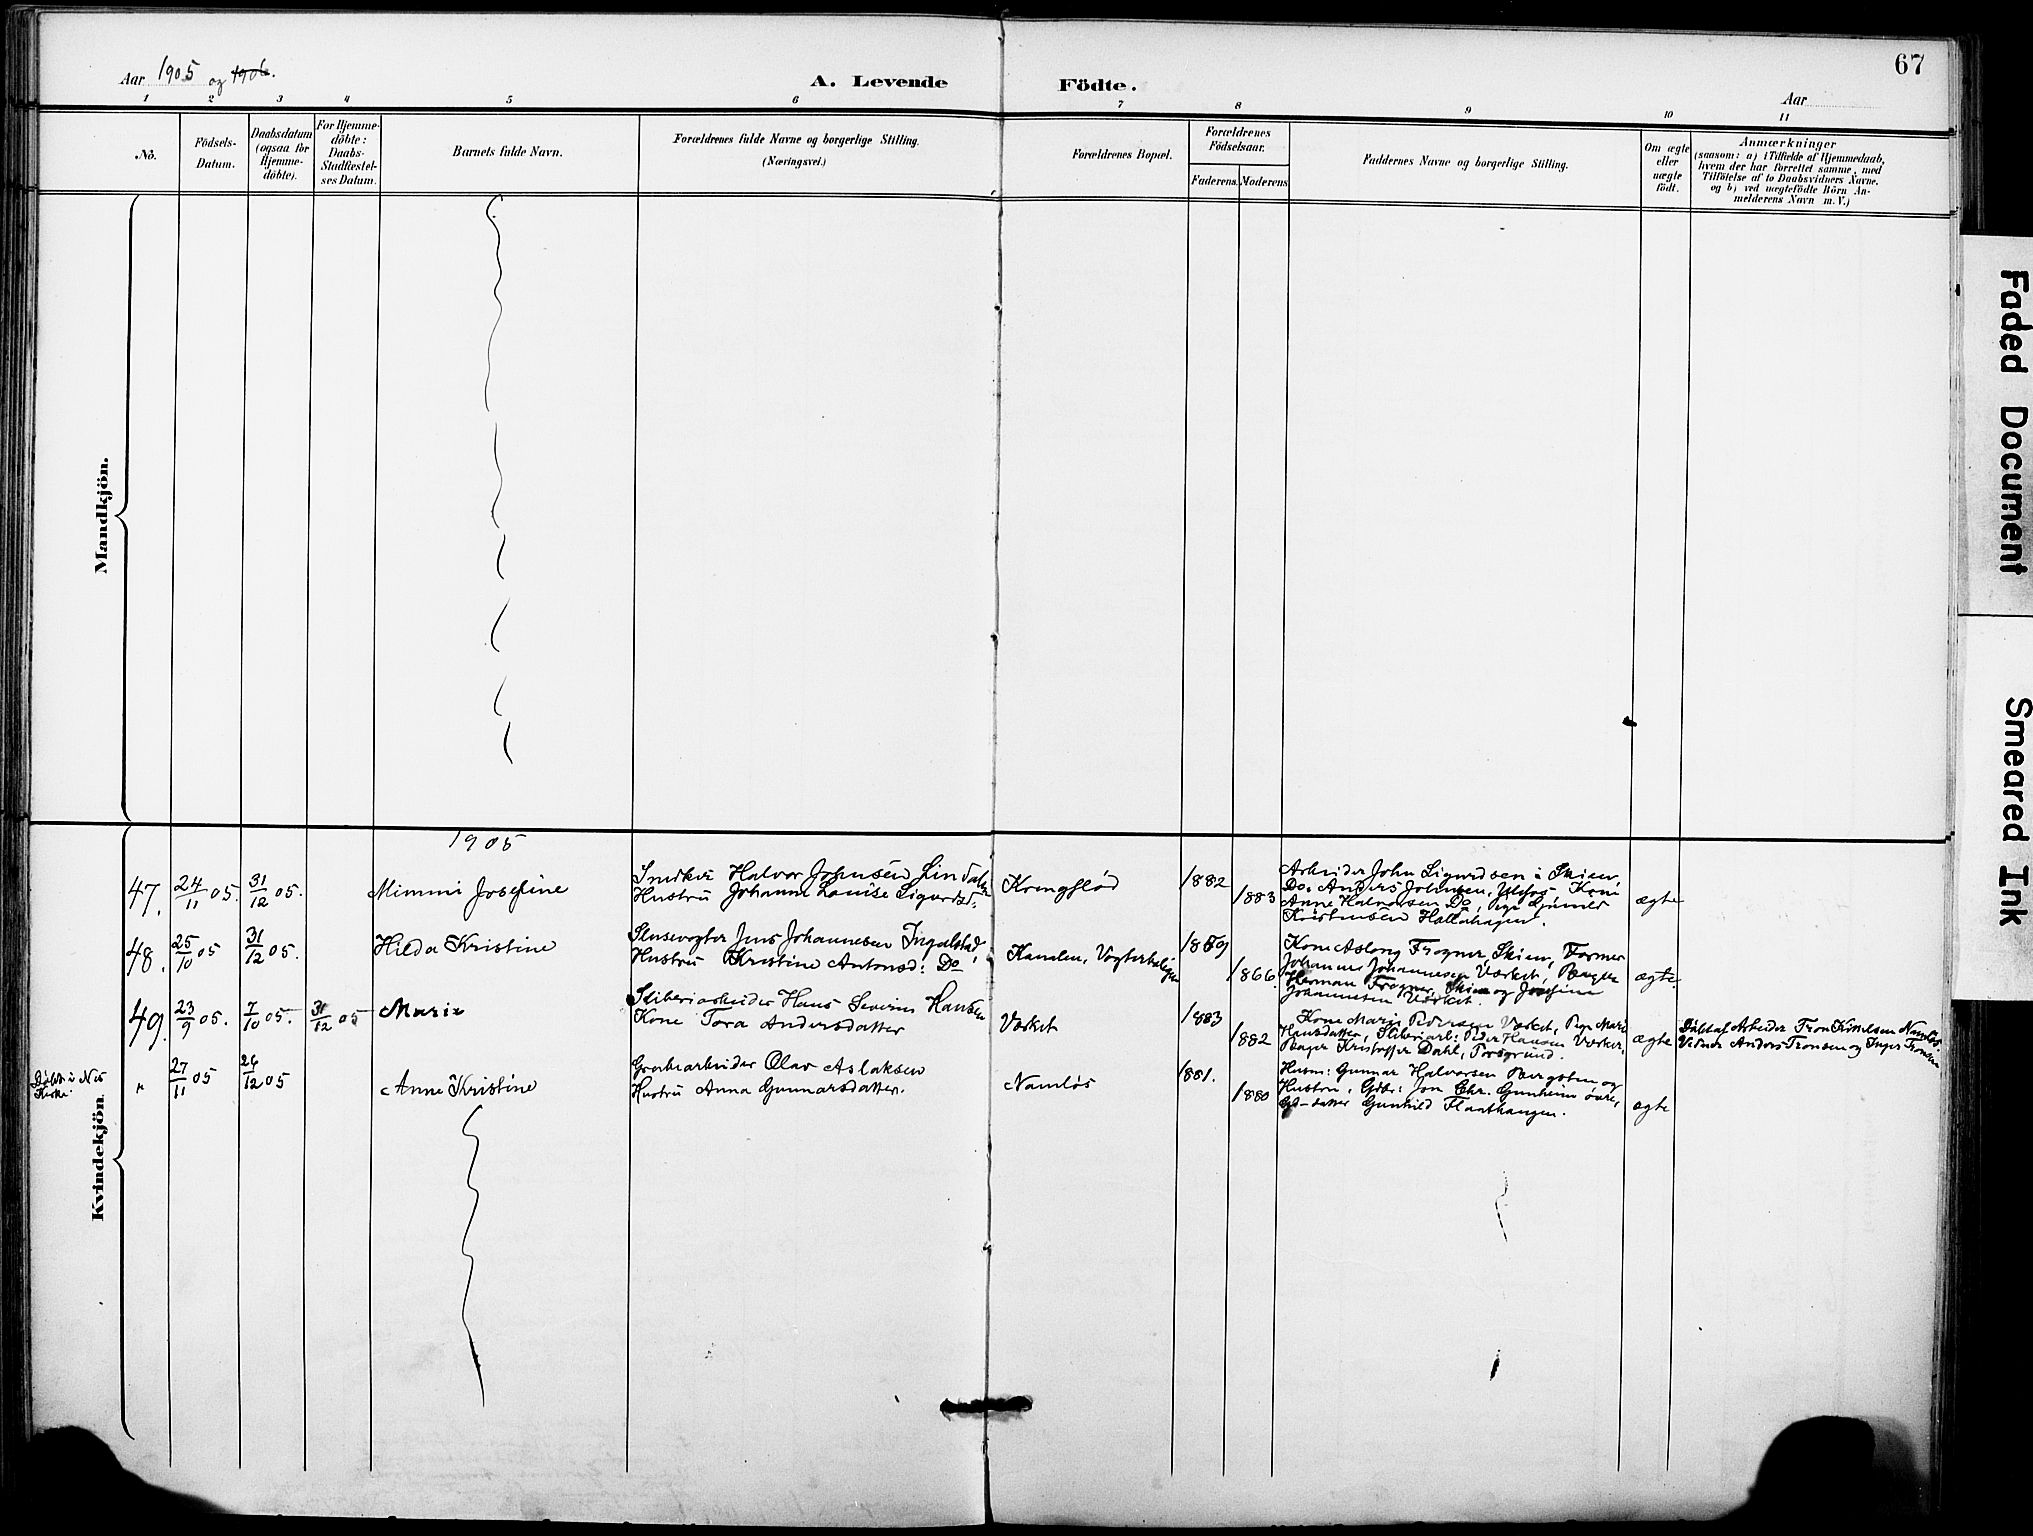 67
Aar 1905 og 1906.
A. Levende Födte.
Aar
1 2 3 4 5 6 7 8 9 10 11
No.
Födsels-Datum.
Daabsdatum (ogsaa for Hjemme-döbte).
For Hjemme-döbte: Daabs-Stadfæstel-ses Datum.
Barnets fulde Navn.
Forældrenes fulde Navne og borgerlige Stilling.
(Næringsvei.)
Forældrenes Bopæl.
Forældrenes Födselsaar.
Faderens. Moderens.
Faddernes Navne og borgerlige Stilling.
Om ægte eller uægte födt.
Anmærkninger
(saasom: a) i Tilfælde af Hjemmedaab,
hvem der har forrettet samme, med
Tilföielse af to Daabsvidners Navne.
og b) ved uægtefödte Börn An-
melderens Navn m. V.)
Mandkjön.
Kvindekjön.
1905
47. 24/11 05. 31/12 05. Mimmi Josefine
Smed Halvor Johnsen
Hustru Johanna Louise Sigurdsd:
1882 1883
Arbeider John Sigurdsen i Skien,
Do. Anders Johnsen, Ulefos, Kone
Anne Halvorsen Do, Pige
Kristensen
ægte
48. 25/10 05 31/12 05. Hilda Kristine
Slusevogter Jens Johannesen Ingolstad,
Hustru Kristine Antonsd: Do
Kanalen,
1866.
Kone Aslaug Frogner, Skien, Former
Johannes Johannesen Værket,
Herman Frogner, Skien og Josefine
Johannesen Værket.
ægte.
49. 23/9 05. 7/10 05. 31/12 05 Marie
Sliberiarbeider Hans Severin Hansen
Kone Tora Andersdatter
Værket
1883 1882
Kone Marie Pedersen Værket, Pige Marie
Hansdatter, Sliberiarb: Peder Hansen Værket,
Bager Kristoffer Dahl, Porsgrund.
ægte
Döbt af Arbeider Tron Namløs.
Vidner Anders Tronsen og Inger Tronsen
Döbt i Nes Kirke.
" 27/11 05 26/12 05 Anne Kristine
Grubearbeider Olav Aslaksen
Hustru Anna Gunnarsdatter.
Namløs
1881. 1880
Husm: Gunnar Halvorsen og
Hustru, Gdbr: Jon Chr. Gunheim øvre,
Gd-datter Gunhild
ægte
Faded Document
Smeared Ink